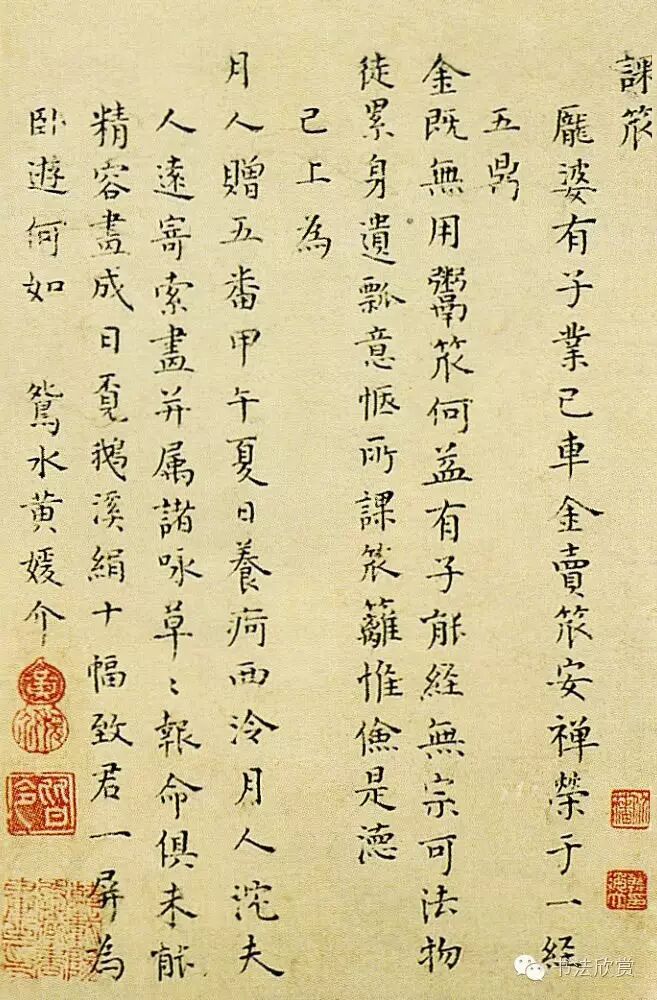 課笊
龐婆有子業已車金賣笊安禅榮于一經
五鼎
金既無用鬻笊何益有子能經無宗可法物
徒累身遺瓢意惬所課笊籬惟儉是德
已上為
月人贈五番甲午夏日養疴西泠月人沱夫
人遠寄索畫并属諸咏草〻報命俱未能
精容畫成日覔鵝溪絹十幅致君一屏為
卧遊何如　鴛水黄媛介
书法欣赏